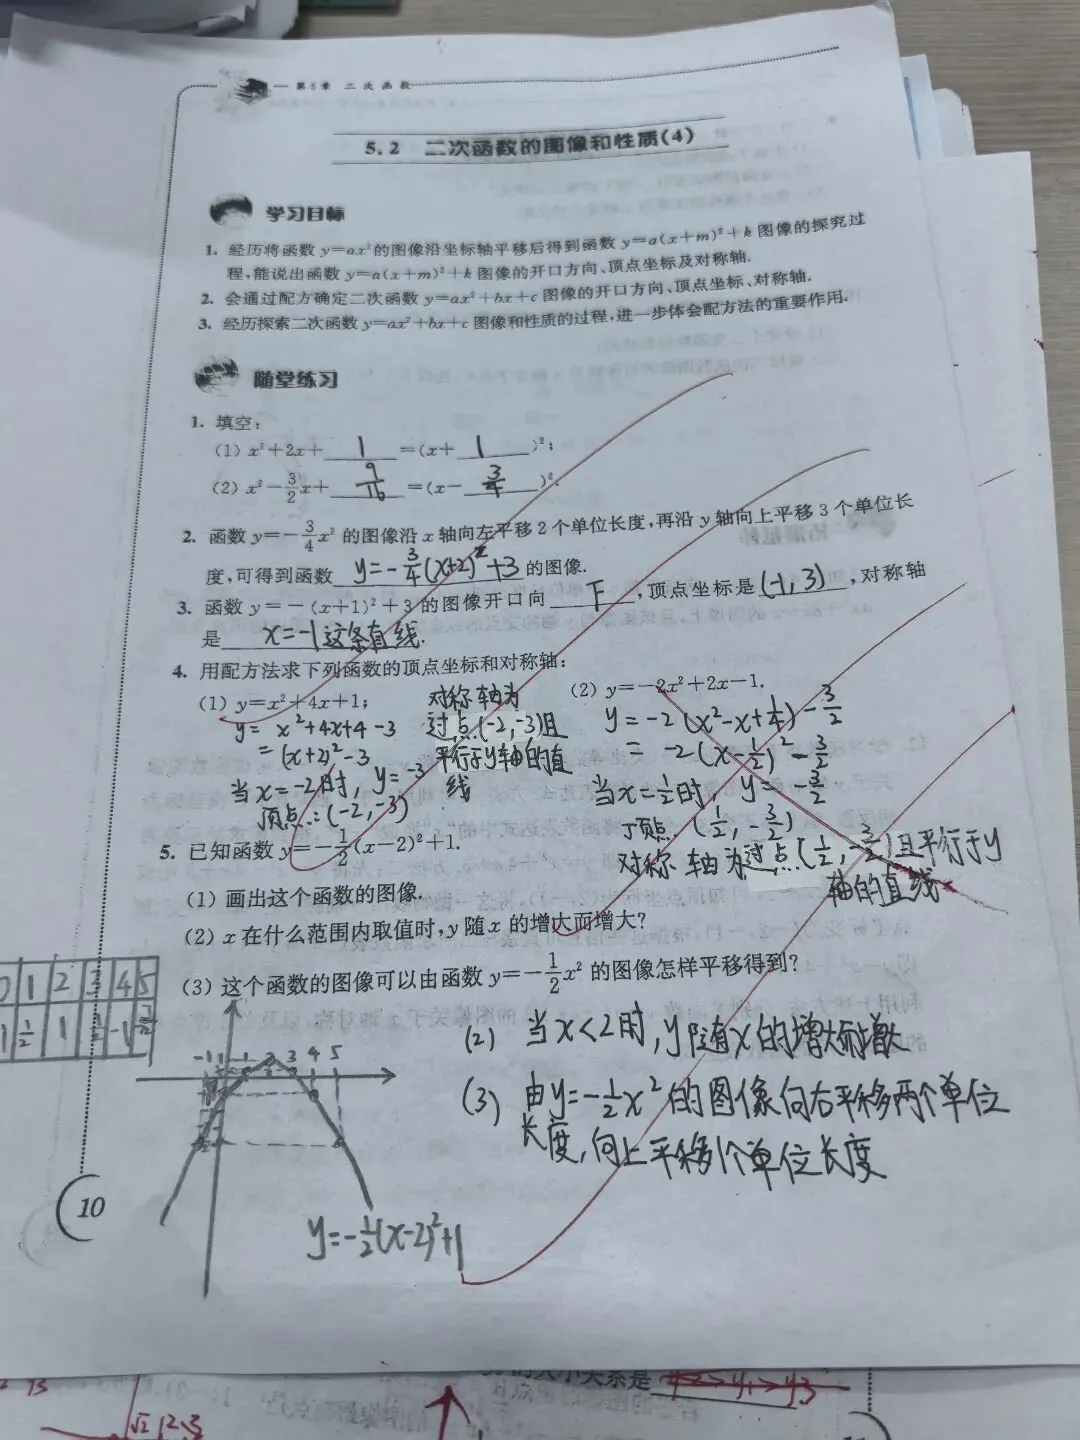 第5章 二次函数
5.2 二次函数的图像和性质(4)
学习目标
1. 经历将函数 y=ax²的图像沿坐标轴平移后得到函数 y=a(x+m)²+k 图像的探究过
程,能说出函数 y=a(x+m)²+k 图像的开口方向、顶点坐标及对称轴.
2. 会通过配方确定二次函数 y=ax²+bx+c 图像的开口方向、顶点坐标、对称轴.
3. 经历探索二次函数 y=ax²+bx+c 图像和性质的过程,进一步体会配方法的重要作用.
随堂练习
1. 填空:
(1) x²+2x+ 1 =(x+ 1 )²;
(2) x²-3/2x+ 9/16 =(x- 3/4 )².
2. 函数 y=-3/4x² 的图像沿 x 轴向左平移 2 个单位长度,再沿 y 轴向上平移 3 个单位长
度,可得到函数 y=-3/4(x+2)²+3 的图像.
3. 函数 y=-(x+1)²+3 的图像开口向 下 ,顶点坐标是 (-1,3) ,对称轴
是 x=-1这条直线.
4. 用配方法求下列函数的顶点坐标和对称轴:
(1) y=x²+4x+1;
y= x²+4x+4-3
= (x+2)²-3
当x=-2时, y=-3
顶点:(-2,-3)
对称轴为
过点(-2,-3)且
平行于y轴的直
线
(2) y=-2x²+2x-1.
y=-2(x²-x+1/4)-3/2
= -2(x-1/2)²-3/2
当x=1/2时, y=-3/2
顶点 (1/2,-3/2)
对称轴为过点(1/2,-3/2)且平行于y
轴的直线
5. 已知函数 y=-1/2(x-2)²+1.
(1) 画出这个函数的图像.
(2) x 在什么范围内取值时,y 随 x 的增大而增大?
(3) 这个函数的图像可以由函数 y=-1/2x² 的图像怎样平移得到?
0 1 2 3 4 5
1/2 1 1/2 -1
-1 1 2 3 4 5
y=-1/2(x-2)²+1
(2) 当x<2时,y随x的增大而增大
(3) 由y=-1/2x²的图像向右平移两个单位
长度,向上平移1个单位长度
10
的大小关系是